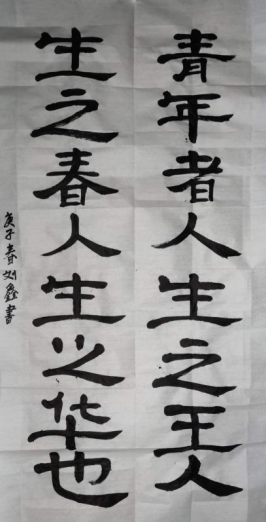 青年者人生之王人
生之春人生之华也
庚子春刘鑫书